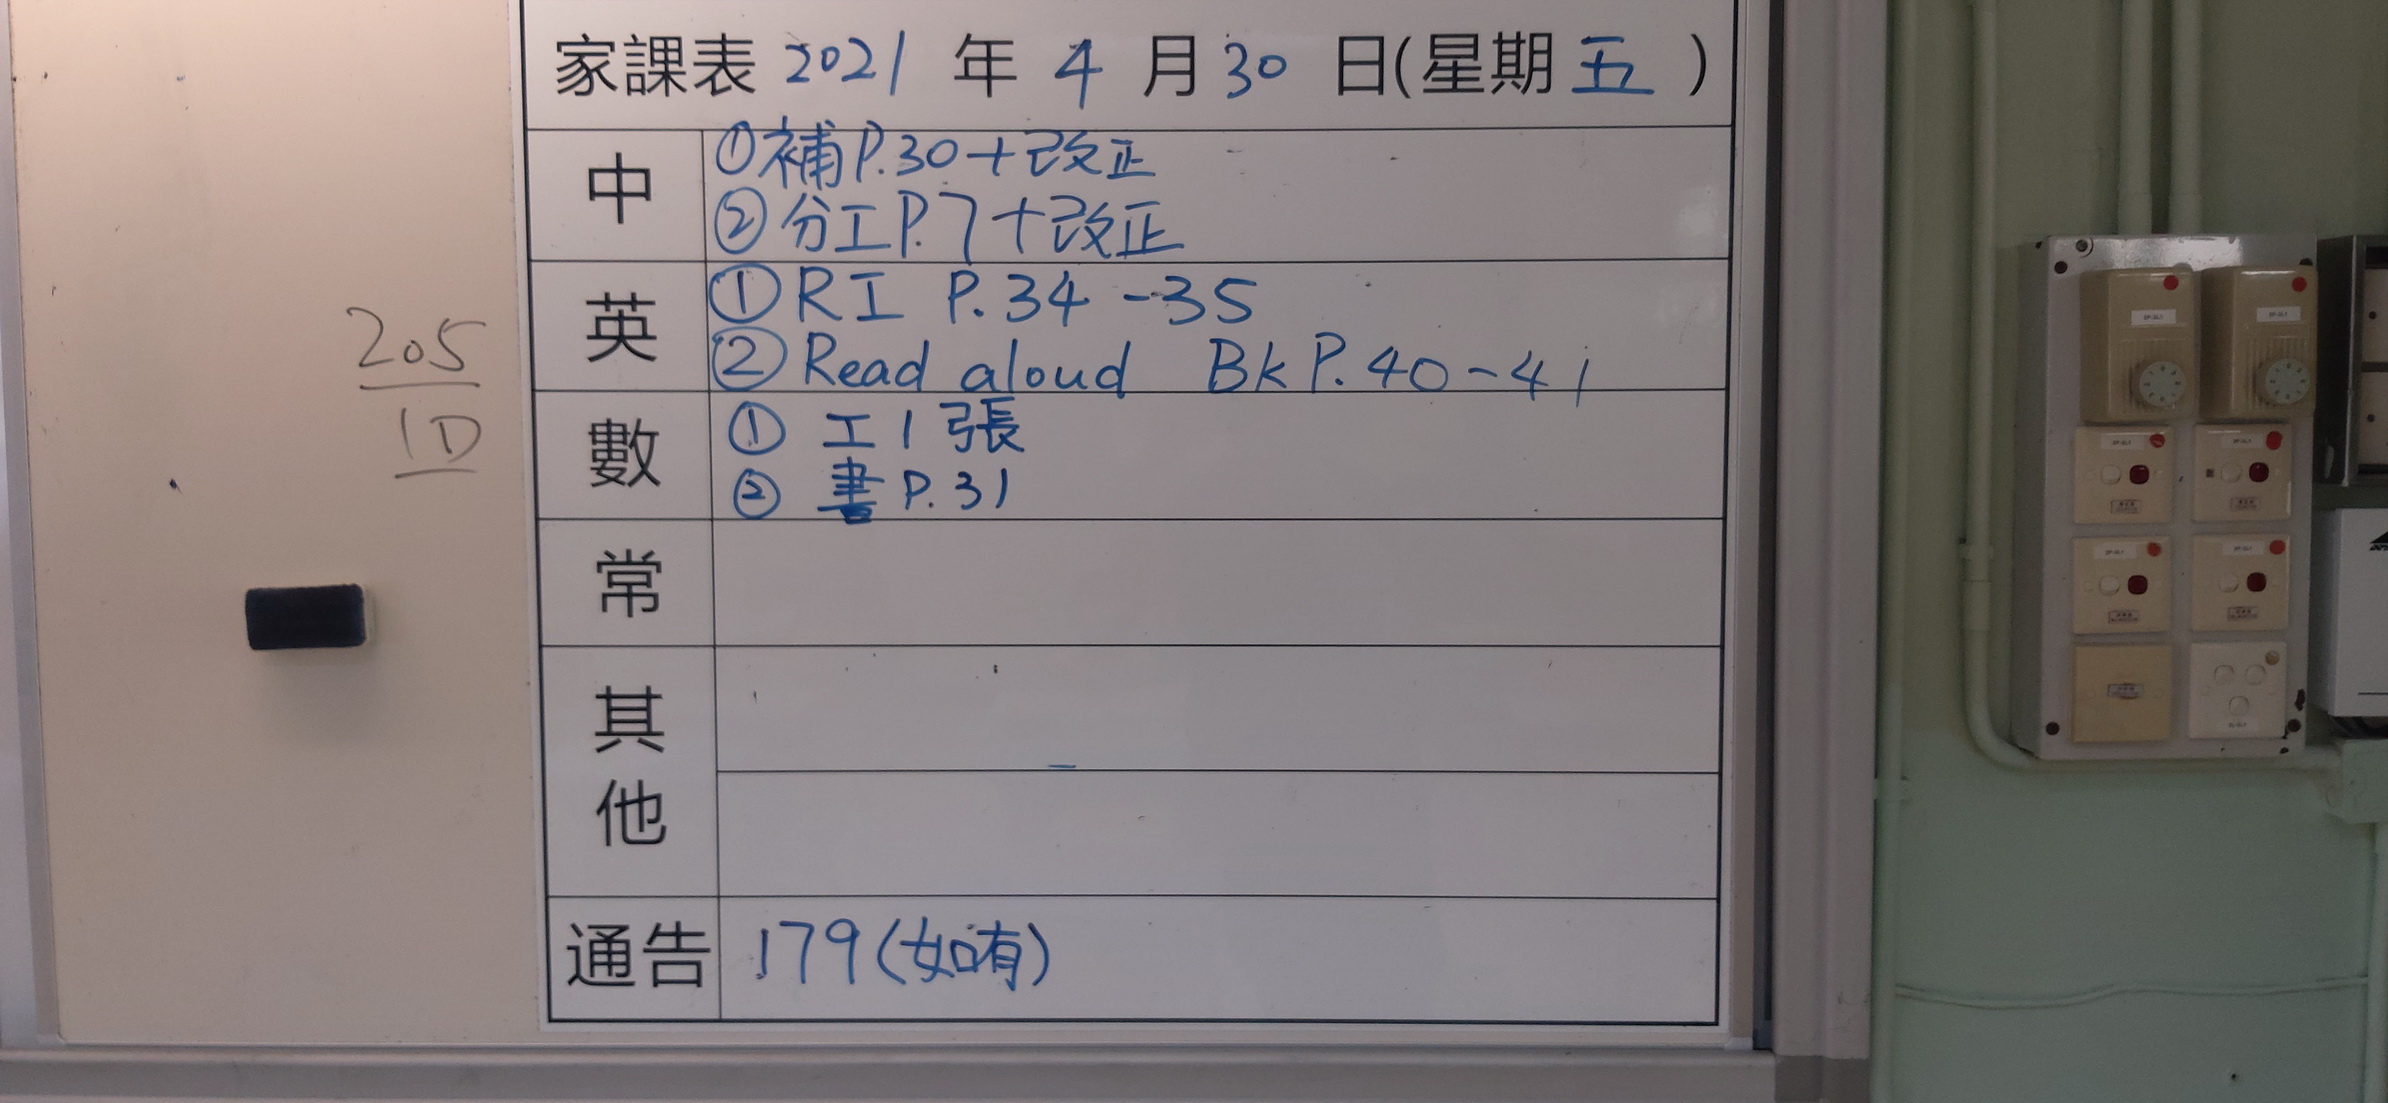 家課表 2021 年 4 月 30 日(星期五)
中
①補P.30+改正
②分工P.7+改正
英
①RI P.34-35
②Read aloud BkP.40-41
數
① 工1張
② 書P.31
常
其他
通告 179(如有)
205
1D